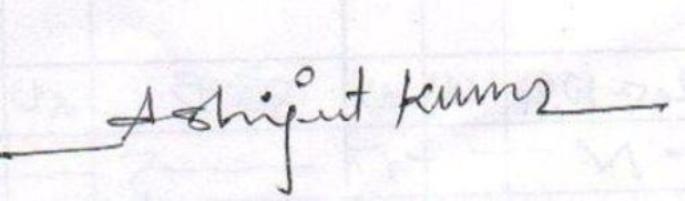 Abhijeet Kumar